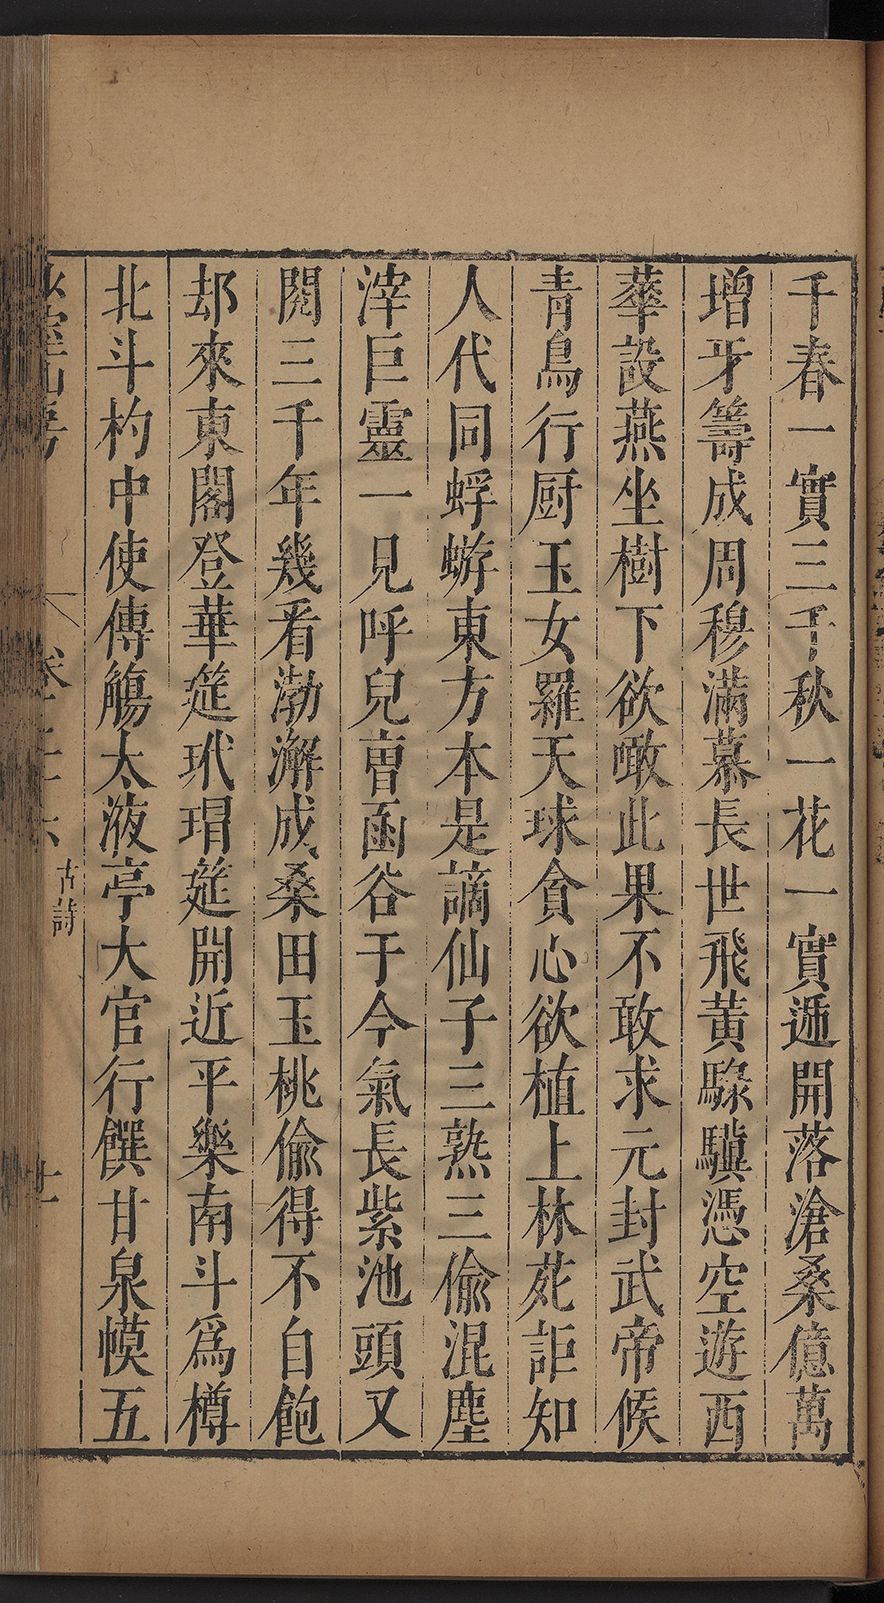 千春一實三千秋一花一實遞開落滄桑億萬
增牙籌成周穆滿慕長世飛黃騄驥憑空遊西
華設燕坐樹下欲噉此果不敢求元封武帝候
青鳥行厨玉女羅天球貪心欲植上林苑詎知
人代同蜉蝣東方本是謫仙子三熟三偷混塵
滓巨靈一見呼兒曹函谷于今氣長紫池頭又
閱三千年幾看渤澥成桑田玉桃偷得不自飽
却來東閣登華筵玳瑁筵開近平樂南斗爲樽
北斗杓中使傳觴太液亭大官行饌甘泉幙五
卷二十六
古詩